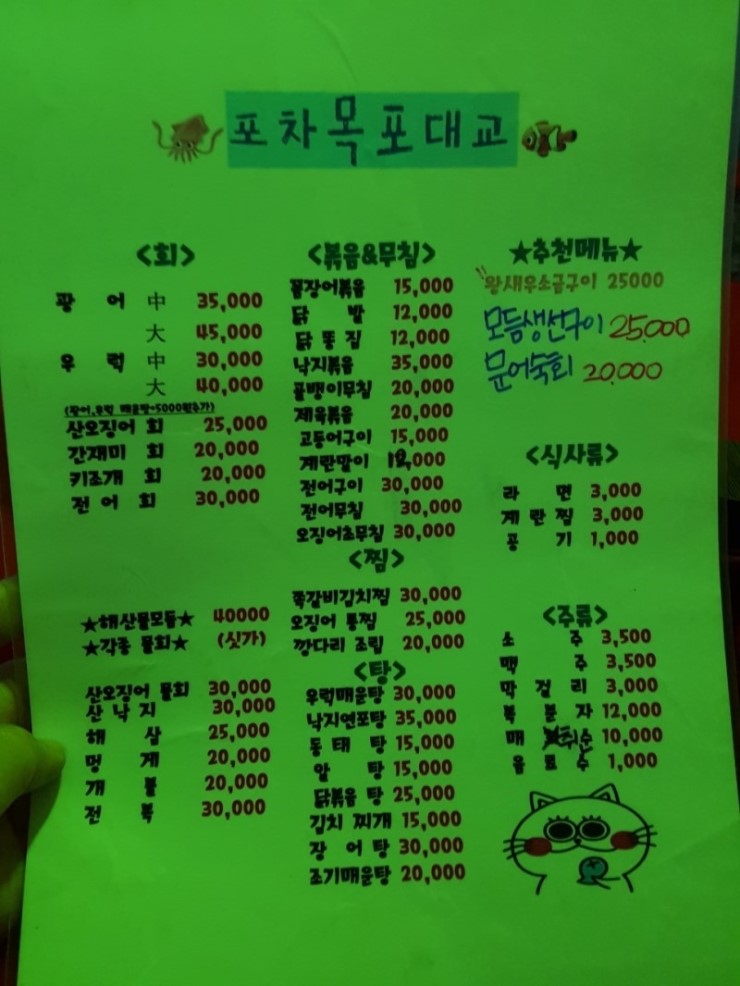 포차목포대교
<회>
광 어 中 35,000
大 45,000
우 럭 中 30,000
大 40,000
(광어,우럭 매운탕+5000원추가)
산오징어 회 25,000
간재미 회 20,000
키조개 회 20,000
전 어 회 30,000
★해산물모듬★ 40000
★각종 물회★ (싯가)
산오징어 물회 30,000
산 낙 지 30,000
해 삼 25,000
멍 게 20,000
개 불 20,000
전 복 30,000
<볶음&무침>
꼼장어볶음 15,000
닭 발 12,000
닭 똥 집 12,000
낙지볶음 35,000
골뱅이무침 20,000
제육볶음 20,000
고등어구이 15,000
계란말이 12,000
전어구이 30,000
전어무침 30,000
오징어초무침 30,000
<찜>
쪽갈비김치찜 30,000
오징어 통찜 25,000
깡다리 조림 20,000
<탕>
우럭매운탕 30,000
낙지연포탕 35,000
동 태 탕 15,000
알 탕 15,000
닭볶음 탕 25,000
김치 찌개 15,000
장 어 탕 30,000
조기매운탕 20,000
★추천메뉴★
왕새우소금구이 25000
모듬생선구이 25,000
문어숙회 20,000
<식사류>
라 면 3,000
계 란 찜 3,000
공 기 1,000
<주류>
소 주 3,500
맥 주 3,500
막 걸 리 3,000
복 분 자 12,000
매 취순 10,000
음 료 수 1,000